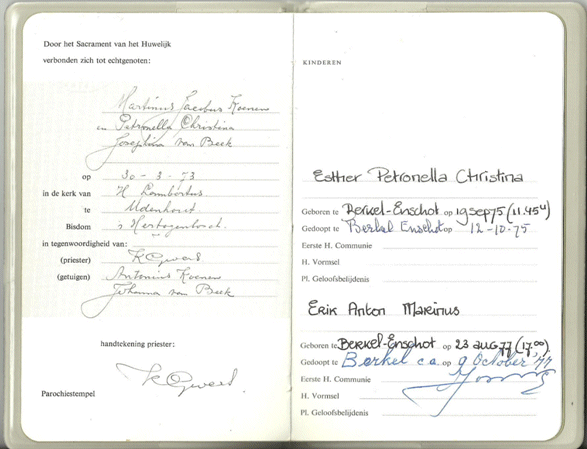 Door het Sacrament van het Huwelijk
verbonden zich tot echtgenoten:
Martinus Jacobus Koenen
en Petronella Christina
Josephina van Beek
op 30-3-73
in de kerk van H Lambertus.
te Udenhout.
Bisdom 's Hertogenbosch.
in tegenwoordigheid van:
(priester)
(getuigen) Antonius Koenen
Johanna van Beek
handtekening priester:
Parochiestempel
KINDEREN
Esther Petronella Christina
Geboren te Berkel-Enschot op 19 sep 75 (11.45 u)
Gedoopt te Berkel Enschot op 12-10-75
Eerste H. Communie
H. Vormsel
Pl. Geloofsbelijdenis
Erik Anton Marinus
Geboren te Berkel-Enschot op 23 aug 77 (17.00)
Gedoopt te Berkel c.a. op 9 October '77
Eerste H. Communie
H. Vormsel
Pl. Geloofsbelijdenis